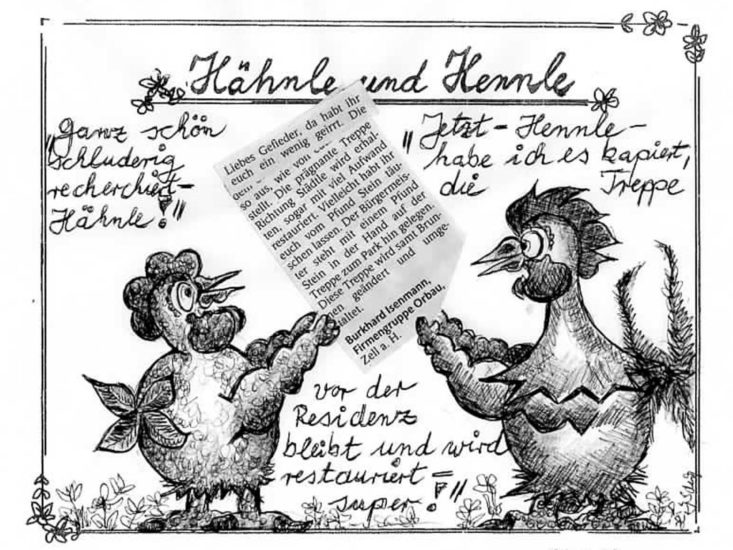 Hähnle und Hennle
„Ganz schön
schluderig
recherchiert-
Hähnle!"
Liebes Gefieder, da habt ihr
euch ein wenig geirrt. Die
so aus, wie von
stellt. Die prägnante Treppe
Richtung Städtle wird erhal-
ten, sogar mit viel Aufwand
restauriert. Vielleicht habt ihr
euch vom Pfund Stein täu-
schen lassen. Der Bürgermeis-
ter steht mit einem Pfund
Stein in der Hand auf der
Treppe zum Park hin gelegen.
Diese Treppe wird samt Brun-
nen geändert und umge-
staltet.
Burkhard Isenmann,
Firmengruppe Orbau,
Zell a. H.
„Jetzt-Hennle-
habe ich es kapiert,
die Treppe
vor der
Residenz
bleibt und wird
restauriert-
super!"